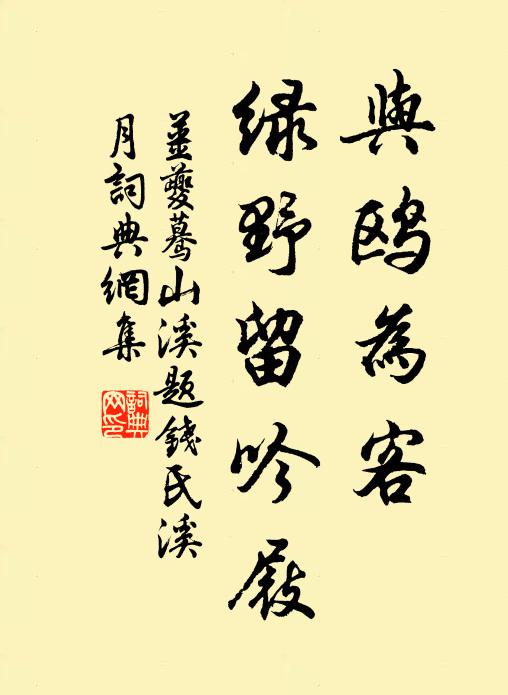 與鷗為客
绿野留吟屐
姜夔驀山溪题錢氏溪
月詞典網集
詞典网印